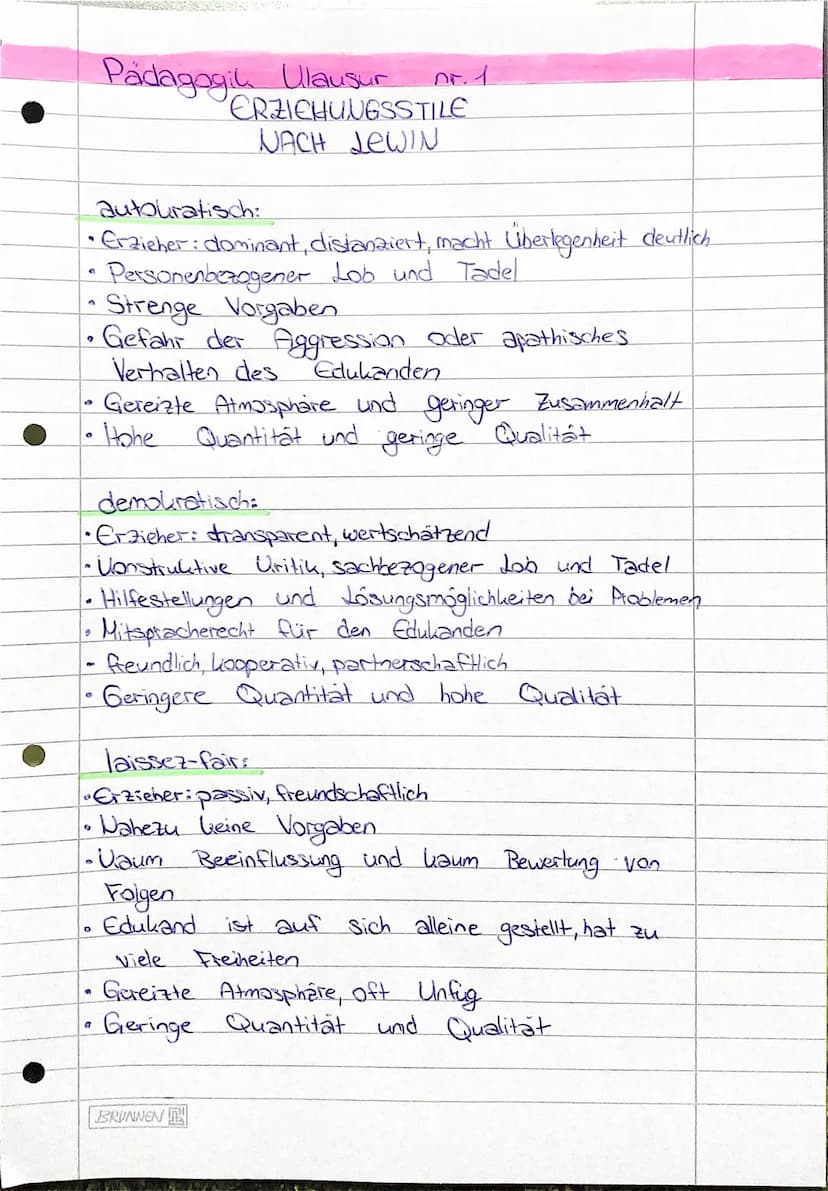 Pädagogik Klausur nr. 1
ERZIEHUNGSSTILE
NACH LEWIN
autokratisch:
• Erzieher: dominant, distanziert, macht Überlegenheit deutlich
• Personenbezogener Lob und Tadel
• Strenge Vorgaben
• Gefahr der Aggression oder apathisches
Verhalten des Edukanden
• Gereizte Atmosphäre und geringer Zusammenhalt
• Hohe Quantität und geringe Qualität
demokratisch:
• Erzieher: transparent, wertschätzend
• Konstruktive Kritik, sachbezogener Lob und Tadel
• Hilfestellungen und Lösungsmöglichkeiten bei Problemen
• Mitspracherecht für den Edukanden
- freundlich, kooperativ, partnerschaftlich
• Geringere Quantität und hohe Qualität
laissez-fair:
• Erzieher: passiv, freundschaftlich
• Nahezu keine Vorgaben
• Kaum Beeinflussung und kaum Bewertung von
Folgen
• Edukand ist auf sich alleine gestellt, hat zu
viele Freiheiten
• Gereizte Atmosphäre, oft Unfug
• Geringe Quantität und Qualität
BRUNNEN